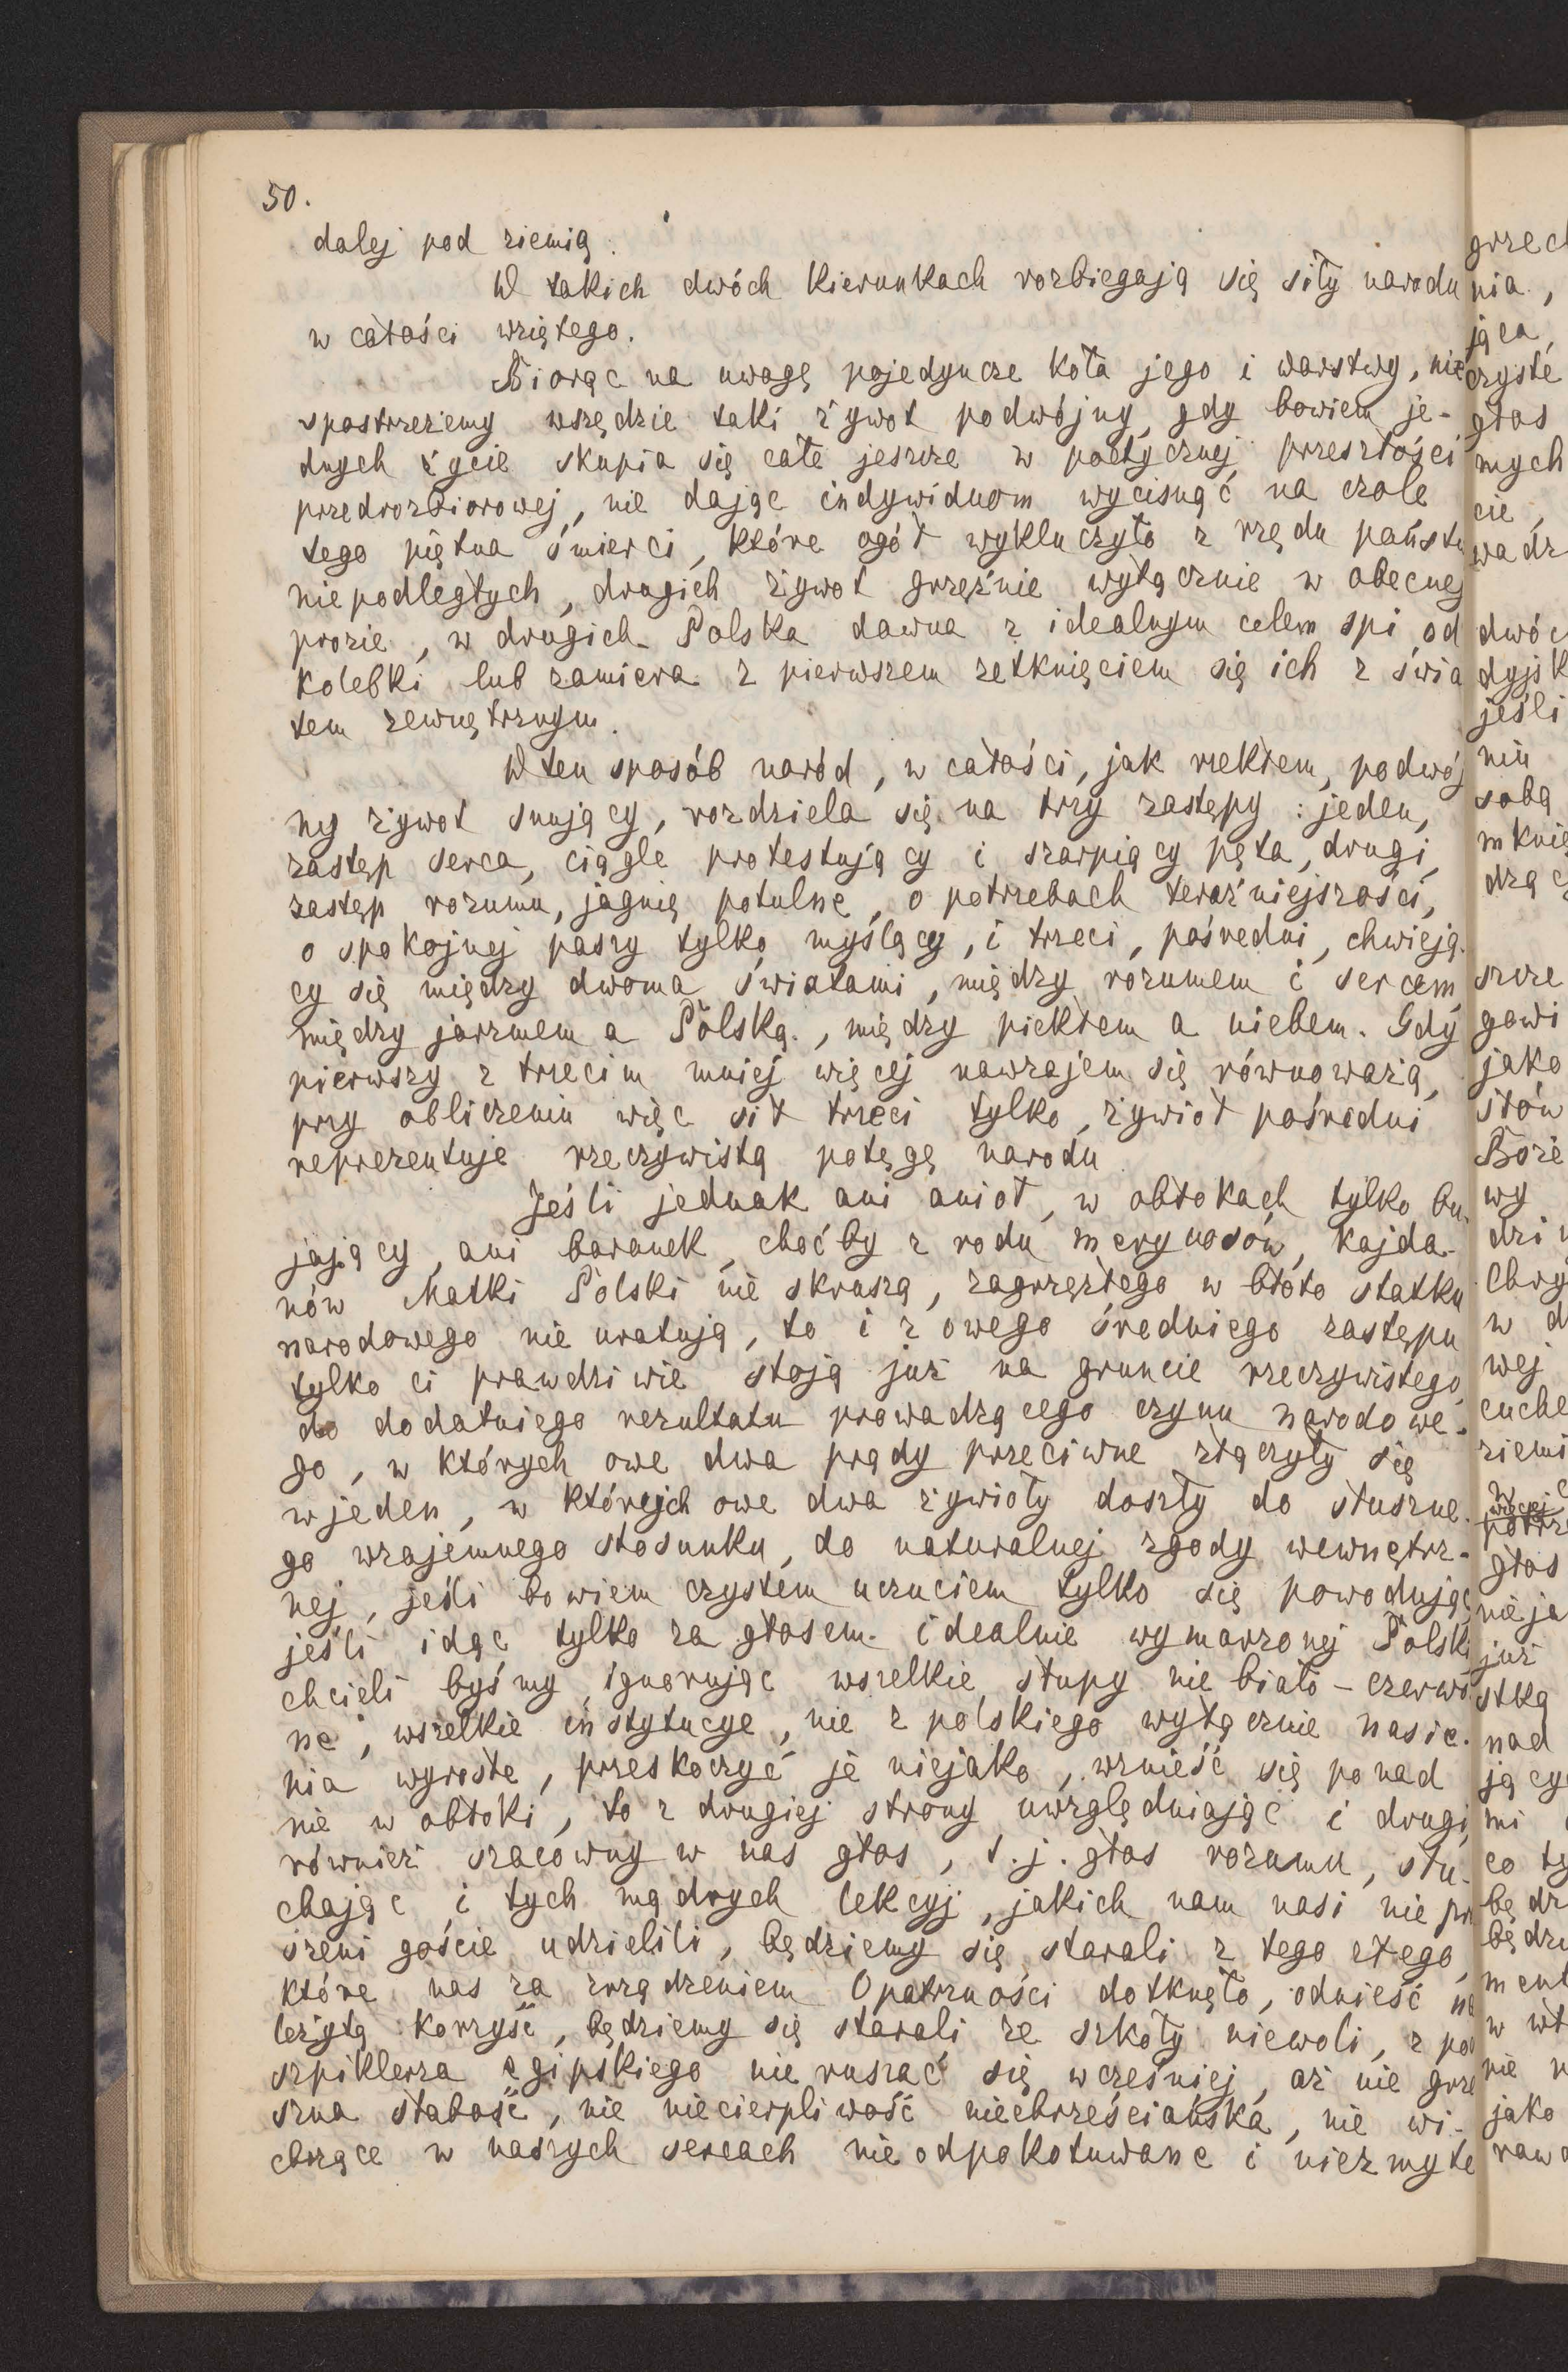 50.
dalej pod ziemią.
W takich dwóch kierunkach rozbiegają się siły narodu
w całości wziętego.
Biorąc na uwagę pojedyncze koła jego i warstwy, nie
spostrzeżemy wszędzie taki żywot podwójny, gdy bowiem je-
dnych życie skupia się całe jeszcze w poetycznej przeszłości
przedrozbiorowej, nie dając indywiduom wycisnąć na czole
tego piętna śmierci, które ogół wykluczyło z rzędu państw
niepodległych, drugich żywot grzęźnie wyłącznie w obecnej
prozie, w drugich Polska dawna z idealnym celem śpi od
kolebki lub zamiera z pierwszem zetknięciem się ich z świa
tem zewnętrznym.
W ten sposób naród, w całości, jak rzekłem, podwój
ny żywot snujący, rozdziela się na trzy zastępy: jeden,
zastęp serca, ciągle protestujący i szarpiący pęta, drugi,
zastęp rozumu, jagnię potulne, o potrzebach teraźniejszości,
o spokojnej paszy tylko myślący, i trzeci, pośredni, chwieją-
cy się między dwoma światami, między rozumem i sercem
między jarzmem a Polską, między piekłem a niebem. Gdy
pierwszy z trzecim mniej więcej nawzajem się równoważą,
przy obliczeniu więc sił trzeci tylko, żywioł pośredni
reprezentuje rzeczywistą potęgę narodu
Jeśli jednak ani anioł, w obłokach tylko bu-
jający, ani baranek, choćby z rodu merynosów, kajda-
nów Matki Polski nie skruszą, zagrzęzłego w błoto statku
narodowego nie uratują, to i z owego średniego zastępu
tylko ci prawdziwie stoją już na gruncie rzeczywistego,
do dodatniego rezultatu prowadzącego czynu narodowe-
go, w których owe dwa prądy przeciwne złączyły się
w jeden, w których owe dwa żywioły doszły do słuszne-
go wzajemnego stosunku, do naturalnej zgody wewnętrz-
nej, jeśli bowiem czystem uczuciem tylko się powodując,
jeśli idąc tylko za głosem idealnie wymarzonej Polski
chcieli byśmy ignorując wszelkie słupy nie biało-czerwo
ne, wszelkie instytucye, nie z polskiego wyłącznie nasie-
nia wyrosłe, przeskoczyć je niejako, wznieść się ponad
nie w obłoki, to z drugiej strony uwzględniając i drugi,
również szacowny w nas głos, t.j. głos rozumu, słu-
chając i tych mądrych lekcyj, jakich nam nasi nie pro
szeni goście udzielili, będziemy się starali z tego złego,
które nas za zrządzeniem Opatrzności dotknęło, odnieść na
leżytą korzyść, będziemy się starali ze szkoły niewoli, z pod
szpiklerza egipskiego nie ruszać się wcześniej, aż nie grze
szna słabość, nie niecierpliwość niechrześciańska, nie wi-
chrzące w naszych sercach nieodpokutowane i niezmyte
grzech
nia,
jąca,
czyste
głos
mych
cie,
wadz
dwóc
dyjsk
jeśli
niu
sobą
mknię
dzą
szcze
gowi
jako
słów
Boże
wy
dzi
Chry
w d
wej
cuche
ziemi
w
więcej
głos
nieja
już
stką
nad
jący
mi
co ty
będz
będzi
ment
w wł
nie
jako
raw